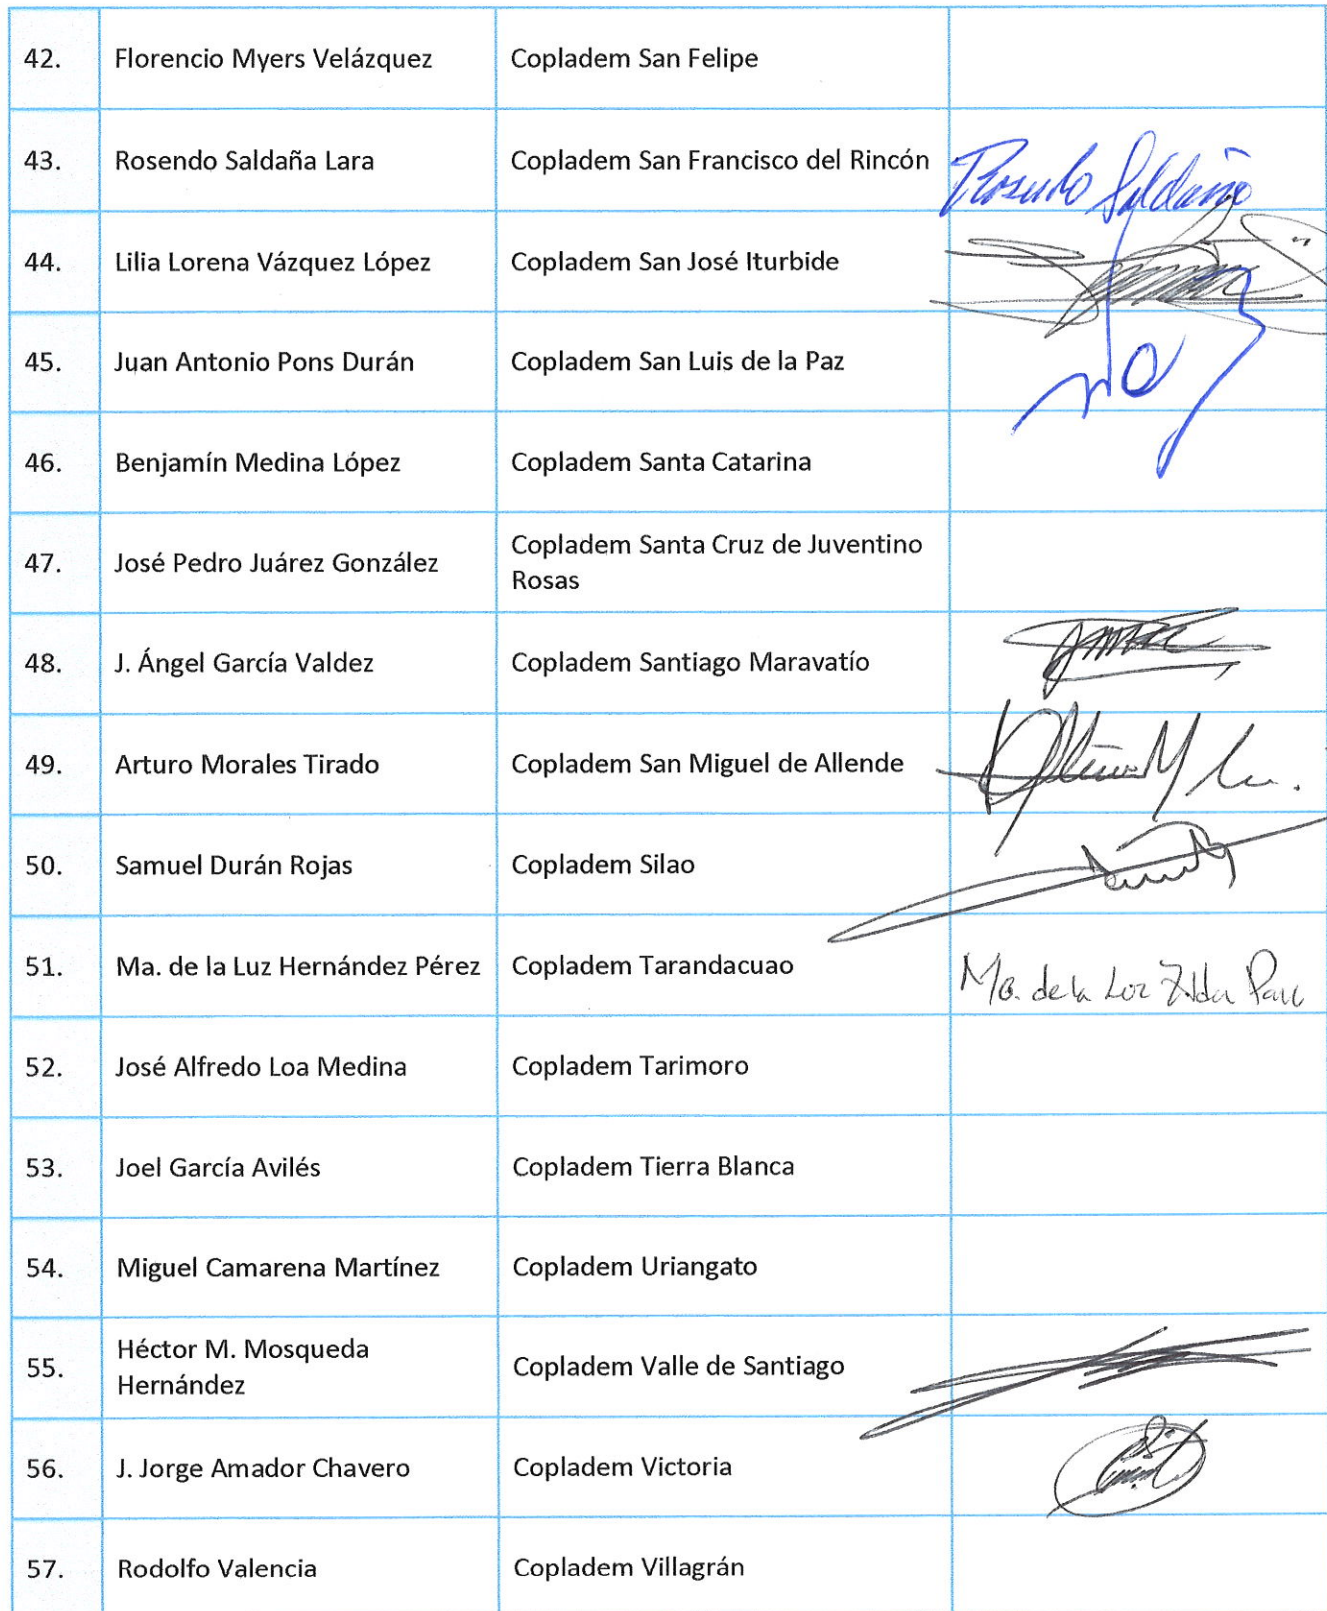 42. Florencio Myers Velázquez Copladem San Felipe
43. Rosendo Saldaña Lara Copladem San Francisco del Rincón Rosendo Saldaña
44. Lilia Lorena Vázquez López Copladem San José Iturbide
45. Juan Antonio Pons Durán Copladem San Luis de la Paz
46. Benjamín Medina López Copladem Santa Catarina
47. José Pedro Juárez González Copladem Santa Cruz de Juventino
Rosas
48. J. Ángel García Valdez Copladem Santiago Maravatío
49. Arturo Morales Tirado Copladem San Miguel de Allende
50. Samuel Durán Rojas Copladem Silao
51. Ma. de la Luz Hernández Pérez Copladem Tarandacuao Ma. de la Luz
52. José Alfredo Loa Medina Copladem Tarimoro
53. Joel García Avilés Copladem Tierra Blanca
54. Miguel Camarena Martínez Copladem Uriangato
55. Héctor M. Mosqueda
Hernández Copladem Valle de Santiago
56. J. Jorge Amador Chavero Copladem Victoria
57. Rodolfo Valencia Copladem Villagrán